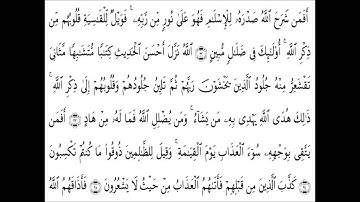 أَفَمَن شَرَحَ ٱللَّهُ صَدْرَهُۥ لِلْإِسْلَٰمِ فَهُوَ عَلَىٰ نُورٍ مِّن رَّبِّهِۦ ۚ فَوَيْلٌ لِّلْقَٰسِيَةِ قُلُوبُهُم مِّن
ذِكْرِ ٱللَّهِ ۚ أُو۟لَٰٓئِكَ فِى ضَلَٰلٍ مُّبِينٍ ٱللَّهُ نَزَّلَ أَحْسَنَ ٱلْحَدِيثِ كِتَٰبًا مُّتَشَٰبِهًا مَّثَانِىَ
تَقْشَعِرُّ مِنْهُ جُلُودُ ٱلَّذِينَ يَخْشَوْنَ رَبَّهُمْ ثُمَّ تَلِينُ جُلُودُهُمْ وَقُلُوبُهُمْ إِلَىٰ ذِكْرِ ٱللَّهِ ۚ
ذَٰلِكَ هُدَى ٱللَّهِ يَهْدِى بِهِۦ مَن يَشَآءُ ۚ وَمَن يُضْلِلِ ٱللَّهُ فَمَا لَهُۥ مِنْ هَادٍ أَفَمَن
يَتَّقِى بِوَجْهِهِۦ سُوٓءَ ٱلْعَذَابِ يَوْمَ ٱلْقِيَٰمَةِ ۚ وَقِيلَ لِلظَّٰلِمِينَ ذُوقُوا۟ مَا كُنتُمْ تَكْسِبُونَ
كَذَّبَ ٱلَّذِينَ مِن قَبْلِهِمْ فَأَتَىٰهُمُ ٱلْعَذَابُ مِنْ حَيْثُ لَا يَشْعُرُونَ فَأَذَاقَهُمُ ٱللَّهُ